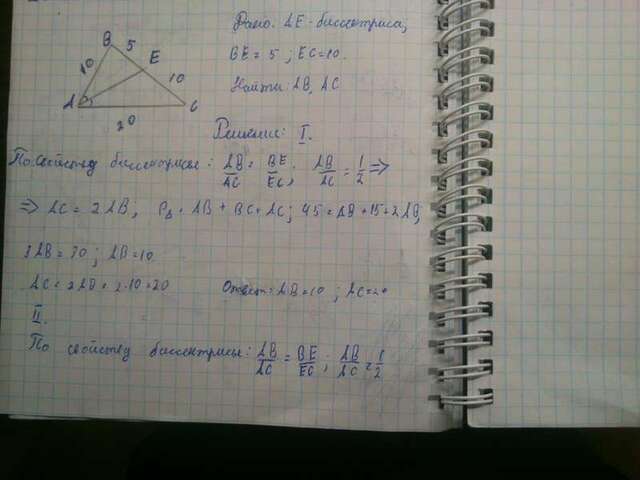 Дано: AE - биссектриса,
BE = 5 ; EC = 10.
Найти: AB, AC
B 5 E
10 10
A C
20
Решение: I.
По свойству биссектрисы: AB/AC = BE/EC ; AB/AC = 1/2 =>
=> AC = 2AB, P△ = AB + BC + AC ; 45 = AB + 15 + 2AB,
3AB = 30 ; AB = 10.
AC = 2AB = 2·10 = 20 Ответ: AB = 10 ; AC = 20
II.
По свойству биссектрисы: AB/AC = BE/EC ; AB/AC = 1/2